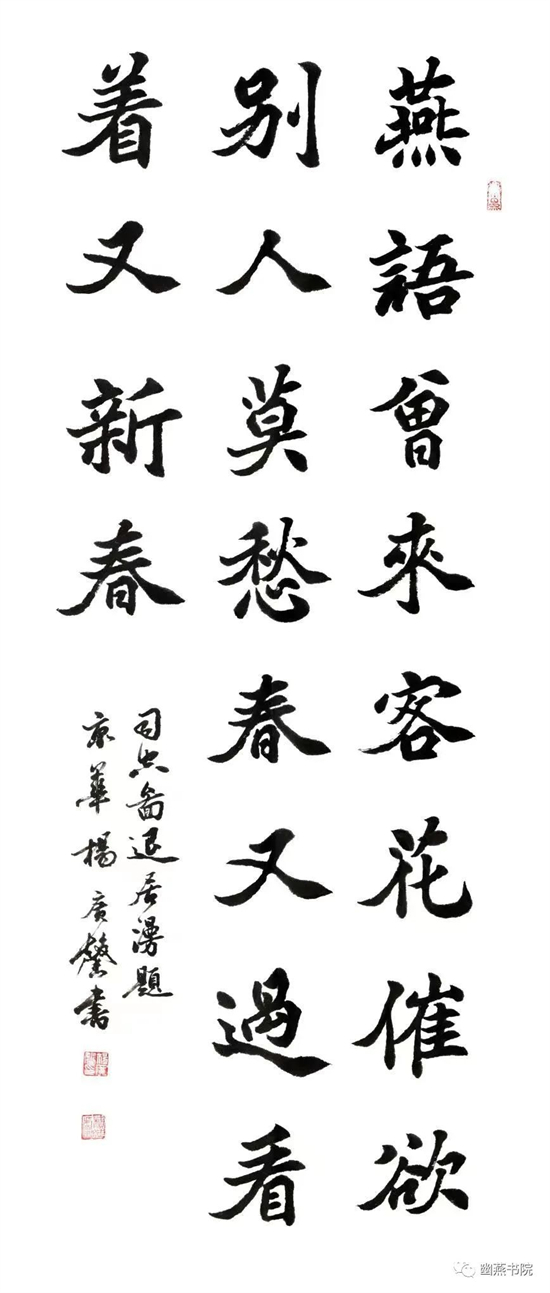 燕語曾來客花催欲
别人莫愁春又過看
着又新春
司空圖退居漫題
京華楊廣馨書
幽燕书院